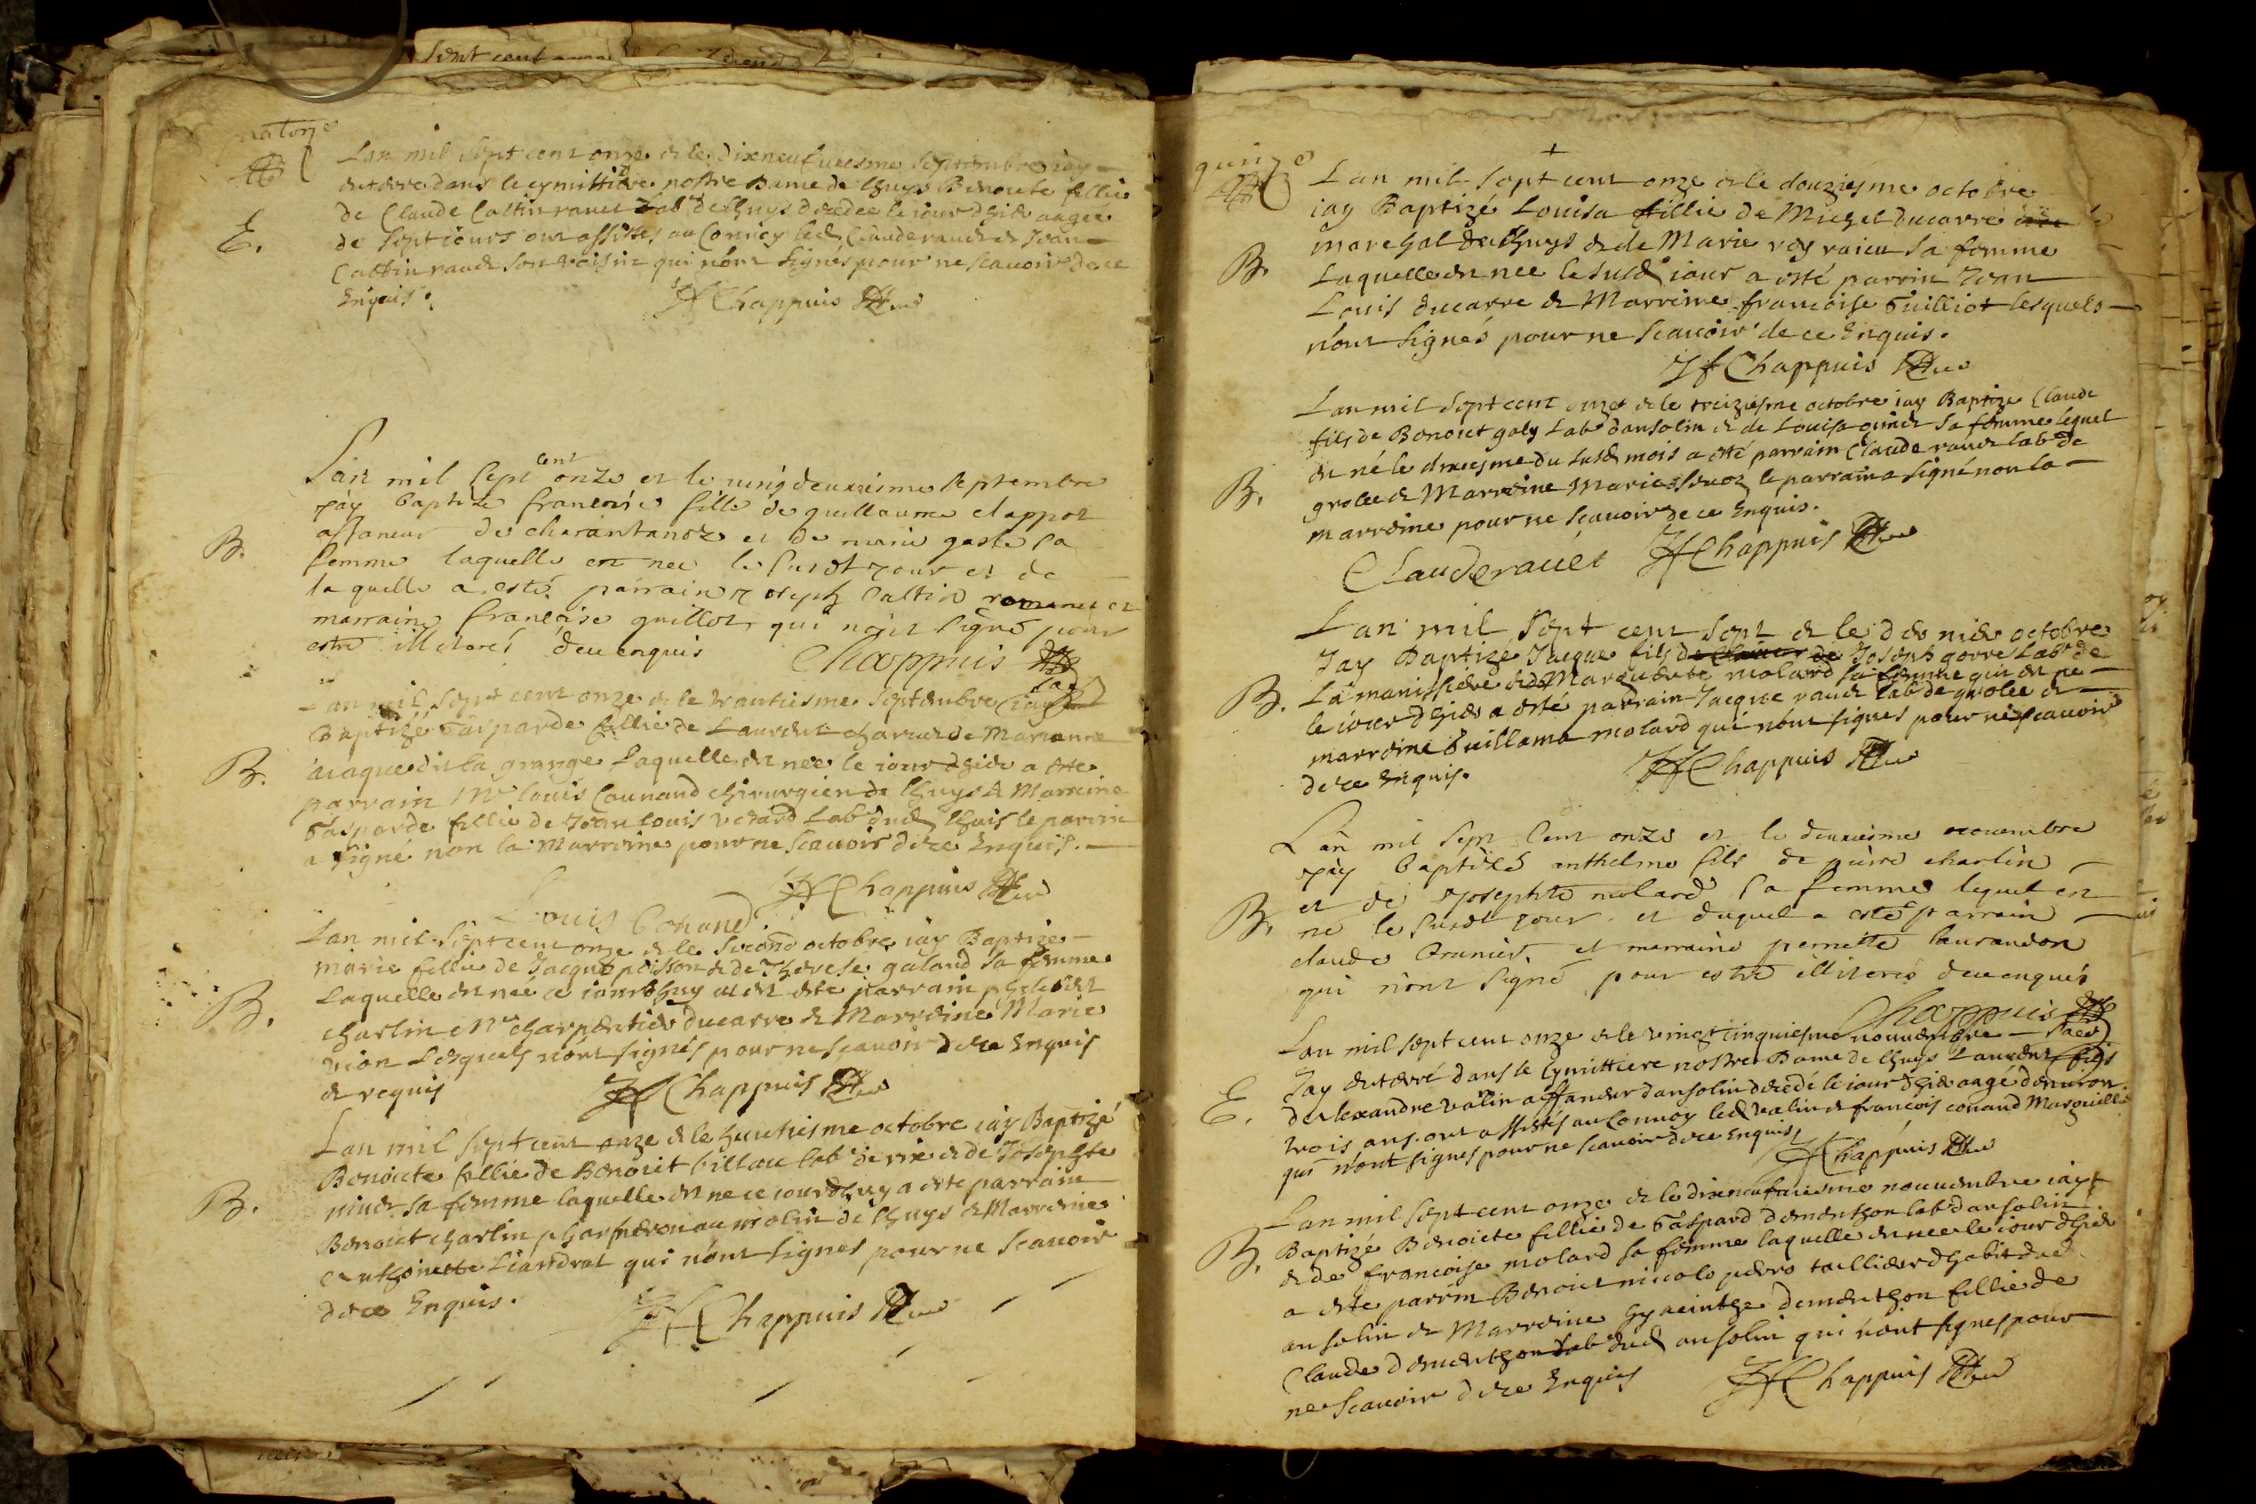 L'an mil sept cent onze et le dixneufuiesme septembre iay
enterre dans le cymittiere nostre Dame de lhuys Benoite fillie
de Claude Caltin rauet Lab de lhuys decedee le iour dhier aagee
de sept iours ont assistes au Conuoy led Claude rauet et Jean
E.
Caltin rauet son voisin qui n'ont signes pour ne scauoir de ce
Enquis.
JF Chappuis
Lan mil sept cent onze et le uingdeuxiesme septembre
jay baptizé francoise fille de guillaume clappot
affaneur de charantanoz et de marie gaste sa
B.
femme laquelle est nee le susdt jour et de
laquelle a esté parrain joseph Caltin romanet et
marraine francoise guillot qui n'ont signé pour
estre illiterés deue enquis
Chappuis
Lan mil sept cent onze et le trentiesme septembre iay
Baptizé Gasparde fillie de Laurent charuet de Marianne
B.
iacaque dit la grange Laquelle est nee le iour dhier a esté
parrain Mr louis Counand chirurgien de lhuys et Marreine
Gasparde fillie de Jean Louis verard Lab dud lhuis le parrin
a signé non la Marreine pour ne scauoir de ce Enquis.
JF Chappuis
Louis Conand
Lan mil sept cent onze et le second octobre iay Baptize
marie fillie de Jacque poisson et de Therese galand sa femme
Laquelle est née ce iourdhuy et est esté parrain philibert
B.
charlin Mre charpentier ducarre et Marreine Marie
vion Lesquels n'ont signés pour ne scauoir de ce Enquis
et requis
JF Chappuis
Lan mil sept cent onze et le huictiesme octobre iay Baptizé
Benoicte fillie de Benoit billau lab de rix et de Josephte
niuet sa femme laquelle est nee ce iourdhuy a esté parrain
B.
Benoict charlin au molin de lhuys et Marreine
anthoinette Liandrat qui n'ont signes pour ne scauoir
de ce Enquis.
JF Chappuis
quinze
Lan mil sept cent onze et le douziesme octobre
iay Baptizé Louisa fillie de Michel ducarre
marechal de lhuys et de Marie sa femme
B.
Laquelle est nee le susd iour a esté parrin Jean
Louis ducarre et Marreine francoise Guilliot lesquels
n'ont signés pour ne scauoir de ce Enquis.
JF Chappuis
Lan mil sept cent onze et le treiziesme octobre iay Baptize Claude
fils de Benoict galy Lab dansolin et de Louisa sa femme lequel
est né le du susd mois a esté parrain Claude rauet lab de
B.
grolee et Marreine Marie le parrain a signé non la
marreine pour ne scauoir de ce Enquis.
Clauderauet JF Chappuis
Lan mil sept cent sept et le dernier octobre
Jay Baptize Jacque fils de Joseph gorre Lab de
B.
La manissiere et de Marguerite molard sa femme qui est ne
le iour dhier a esté parrain Jacque rauet lab de grolee et
marreine Guillama molard qui n'ont signes pour ne scauoir
de ce Enquis.
JF Chappuis
Lan mil sept Cent onze et le deuxiesme nouembre
jay baptizé anthelme fils de pierre charlin
et de Josephte molard sa femme lequel est
B.
ne le susdt jour et duquel a esté parrain
claude Brunier et marraine pernette laurandon
qui n'ont signé pour estre illiterés deue enquis
Chappuis
Lan mil sept cent onze et le vingt cinquiesme nouembre
Jay enterré dans le Cymittiere nostre Dame de lhuys Laurent fils
E.
dalexandre valin affaneur dansolin decedé le iour dhier aagé denuiron
trois ans ont assistés au Conuoy led valin et francois conand
qui n'ont signes pour ne scauoir de ce Enquis
JF Chappuis
Lan mil sept cent onze et le dixneufuiesme nouembre iay
B.
Baptizé Benoicte fillie de Gaspard demerthon lab dansolin
et de francoise molard sa femme laquelle est nee le iour dhier
a esté parrin Benoict nicolo tallieur dhabit dud
ansolin et Marreine hyacinthe demerthon fillie de
Claude demerthon lab dud ansolin qui n'ont signes pour
ne Scauoir de ce Enquis
JF Chappuis